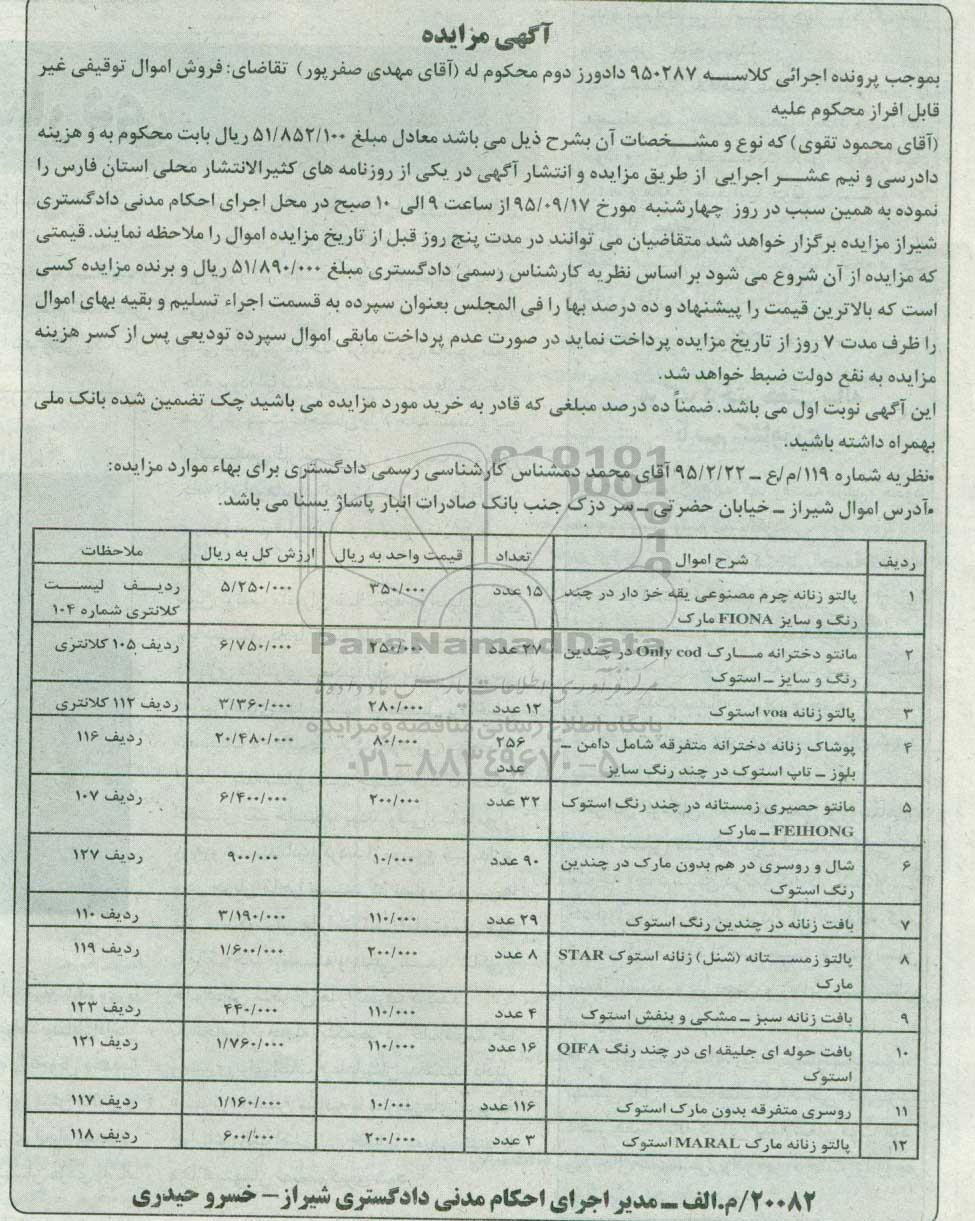 آگهی مزایده
بموجب پرونده اجرائی کلاســه ۹۵۰۲۸۷ دادورز دوم محکوم له (آقای مهدی صفرپور) تقاضای: فروش اموال توقیفی غیر
قابل افراز محکوم علیه
(آقای محمود تقوی) که نوع و مشـخصات آن بشرح ذیل می باشد معادل مبلغ ۵۱/۸۵۲/۱۰۰ ریال بابت محکوم به و هزینه
دادرسی و نیم عشـر اجرایی از طریق مزایده و انتشار آگهی در یکی از روزنامه های کثیرالانتشار محلی استان فارس را
نموده به همین سبب در روز چهارشنبه مورخ ۹۵/۰۹/۱۷ از ساعت ۹ الی ۱۰ صبح در محل اجرای احکام مدنی دادگستری
شیراز مزایده برگزار خواهد شد متقاضیان می توانند در مدت پنج روز قبل از تاریخ مزایده اموال را ملاحظه نمایند. قیمتی
که مزایده از آن شروع می شود بر اساس نظریه کارشناس رسمی دادگستری مبلغ ۵۱/۸۹۰/۰۰۰ ریال و برنده مزایده کسی
است که بالاترین قیمت را پیشنهاد و ده درصد بها را فی المجلس بعنوان سپرده به قسمت اجراء تسلیم و بقیه بهای اموال
را ظرف مدت ۷ روز از تاریخ مزایده پرداخت نماید در صورت عدم پرداخت مابقی اموال سپرده تودیعی پس از کسر هزینه
مزایده به نفع دولت ضبط خواهد شد.
این آگهی نوبت اول می باشد. ضمناً ده درصد مبلغی که قادر به خرید مورد مزایده می باشید چک تضمین شده بانک ملی
بهمراه داشته باشید.
•نظریه شماره ۱۱۹/م/ع ــ ۹۵/۲/۲۲ آقای محمد دمشناس کارشناسی رسمی دادگستری برای بهاء موارد مزایده:
•آدرس اموال شیراز ــ خیابان حضرتی ــ سر دزک جنب بانک صادرات انبار پاساژ یسنا می باشد.
ردیف شرح اموال تعداد قیمت واحد به ریال ارزش کل به ریال ملاحظات
۱ پالتو زنانه چرم مصنوعی یقه خز دار در چند ۱۵ عدد ۳۵۰/۰۰۰ ۵/۲۵۰/۰۰۰ ردیـف لیسـت
رنگ و سایز FIONA مارک کلانتری شماره ۱۰۴
۲ مانتو دخترانه مـارک Only cod در چندین ۲۷ عدد ۲۵۰/۰۰۰ ۶/۷۵۰/۰۰۰ ردیف ۱۰۵ کلانتری
رنگ و سایز ــ استوک
۳ پالتو زنانه voa استوک ۱۲ عدد ۲۸۰/۰۰۰ ۳/۳۶۰/۰۰۰ ردیف ۱۱۲ کلانتری
۴ پوشاک زنانه دخترانه متفرقه شامل دامن ــ ۲۵۶ ۸۰/۰۰۰ ۲۰/۴۸۰/۰۰۰ ردیف ۱۱۶
بلوز ــ تاپ استوک در چند رنگ سایز عدد
۵ مانتو حصیری زمستانه در چند رنگ استوک ۳۲ عدد ۲۰۰/۰۰۰ ۶/۴۰۰/۰۰۰ ردیف ۱۰۷
FEIHONG ــ مارک
۶ شال و روسری در هم بدون مارک در چندین ۹۰ عدد ۱۰/۰۰۰ ۹۰۰/۰۰۰ ردیف ۱۲۷
رنگ استوک
۷ بافت زنانه در چندین رنگ استوک ۲۹ عدد ۱۱۰/۰۰۰ ۳/۱۹۰/۰۰۰ ردیف ۱۱۰
۸ پالتو زمسـتانه (شنل) زنانه استوک STAR ۸ عدد ۲۰۰/۰۰۰ ۱/۶۰۰/۰۰۰ ردیف ۱۱۹
مارک
۹ بافت زنانه سبز ــ مشکی و بنفش استوک ۴ عدد ۱۱۰/۰۰۰ ۴۴۰/۰۰۰ ردیف ۱۲۳
۱۰ بافت حوله ای جلیقه ای در چند رنگ QIFA ۱۶ عدد ۱۱۰/۰۰۰ ۱/۷۶۰/۰۰۰ ردیف ۱۲۱
استوک
۱۱ روسری متفرقه بدون مارک استوک ۱۱۶ عدد ۱۰/۰۰۰ ۱/۱۶۰/۰۰۰ ردیف ۱۱۷
۱۲ پالتو زنانه مارک MARAL استوک ۳ عدد ۲۰۰/۰۰۰ ۶۰۰/۰۰۰ ردیف ۱۱۸
۲۰۰۸۲/م.الف ــ مدیر اجرای احکام مدنی دادگستری شیراز – خسرو حیدری
ParsNamadData
مرکز فرآوری اطلاعات پارس نماد داده ها
پایگاه اطلاع رسانی مناقصه و مزایده
۰۲۱-۸۸۳۴۹۶۷۰-۵